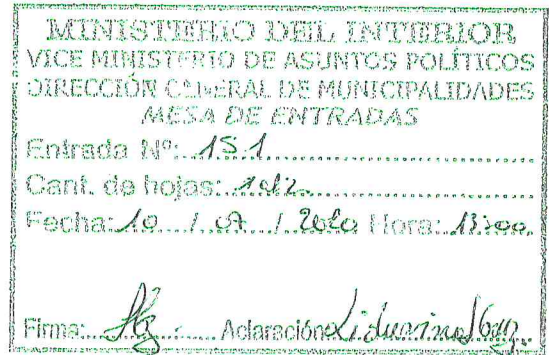 MINISTERIO DEL INTERIOR
VICE MINISTERIO DE ASUNTOS POLÍTICOS
DIRECCIÓN GENERAL DE MUNICIPALIDADES
MESA DE ENTRADAS
Entrada Nº: 151
Cant. de hojas:
Fecha: 10 / 07 / 2020 Hora: 13:00
Firma: Aclaración: